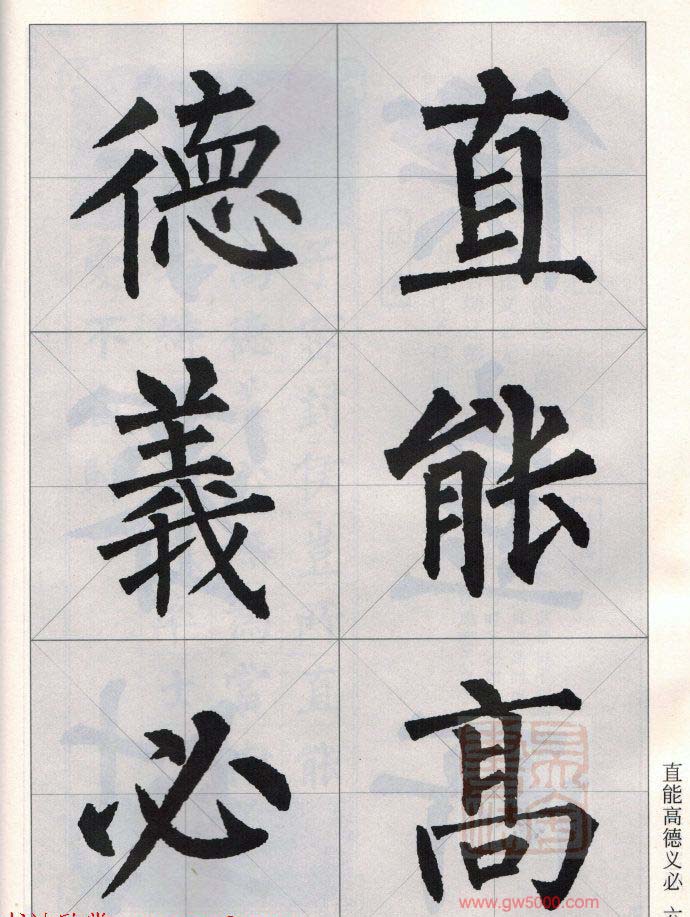 直能高
德義必
直能高德义必
www.gw5000.com